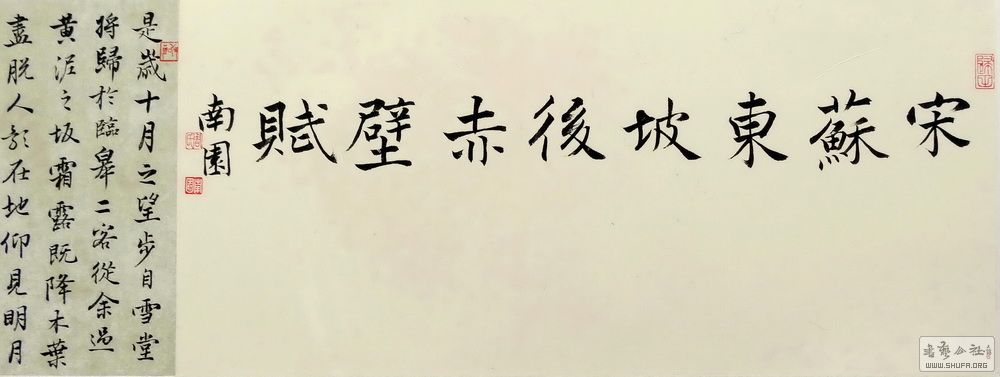 宋蘇東坡後赤壁賦
南園
是歲十月之望步自雪堂
將歸於臨皋二客從余過
黄泥之坂霜露既降木葉
盡脱人影在地仰見明月
書藝公社
WWW.SHUFA.ORG